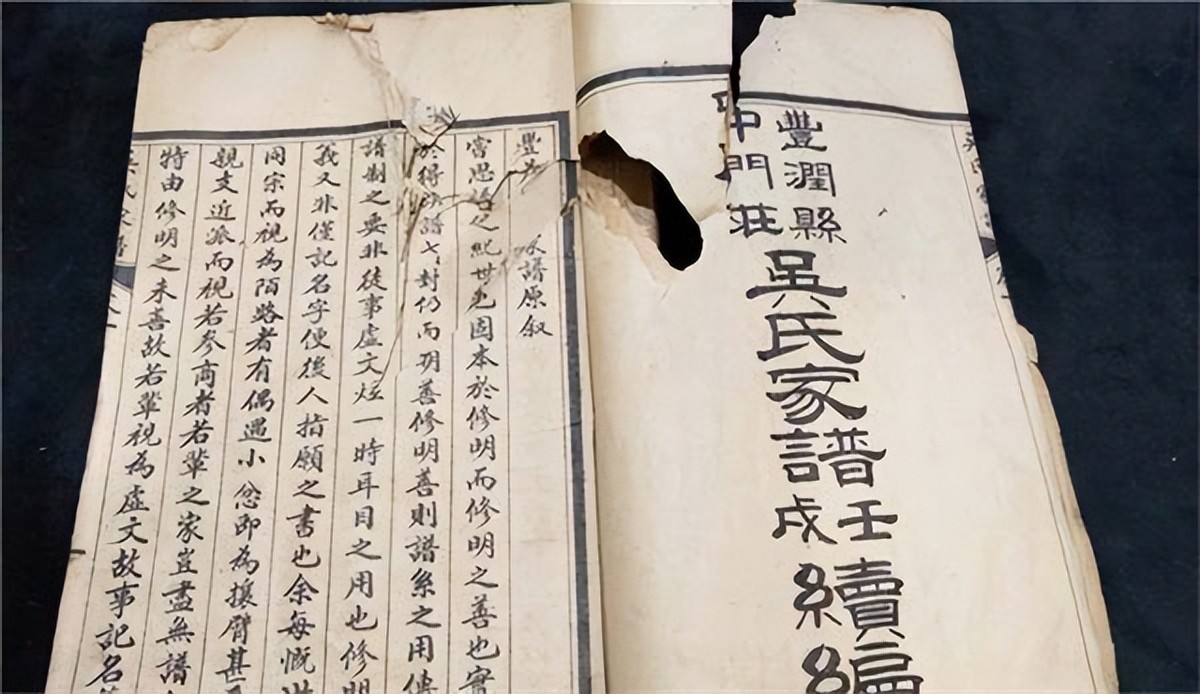 豐潤縣
中門莊
吳氏家譜
壬戌
續編
豐 譜原叙
嘗思 之紀世 固本於修明而修明之善也實
於得 譜 封仍而 善修明善則譜系之用
譜 之要非徒事虛文炫一時耳目之用也修明
義又非僅記名字便後人指願之書也余每慨
同宗而視為陌路者有偶遇小忿即為攘臂甚
親支近派而視若參商者若輩之家豈盡無譜
特由修明之未善故若輩視為虛文故事記名
氏家譜